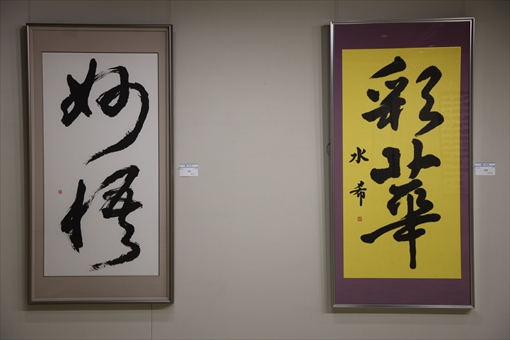 妙悟
彩華
水希